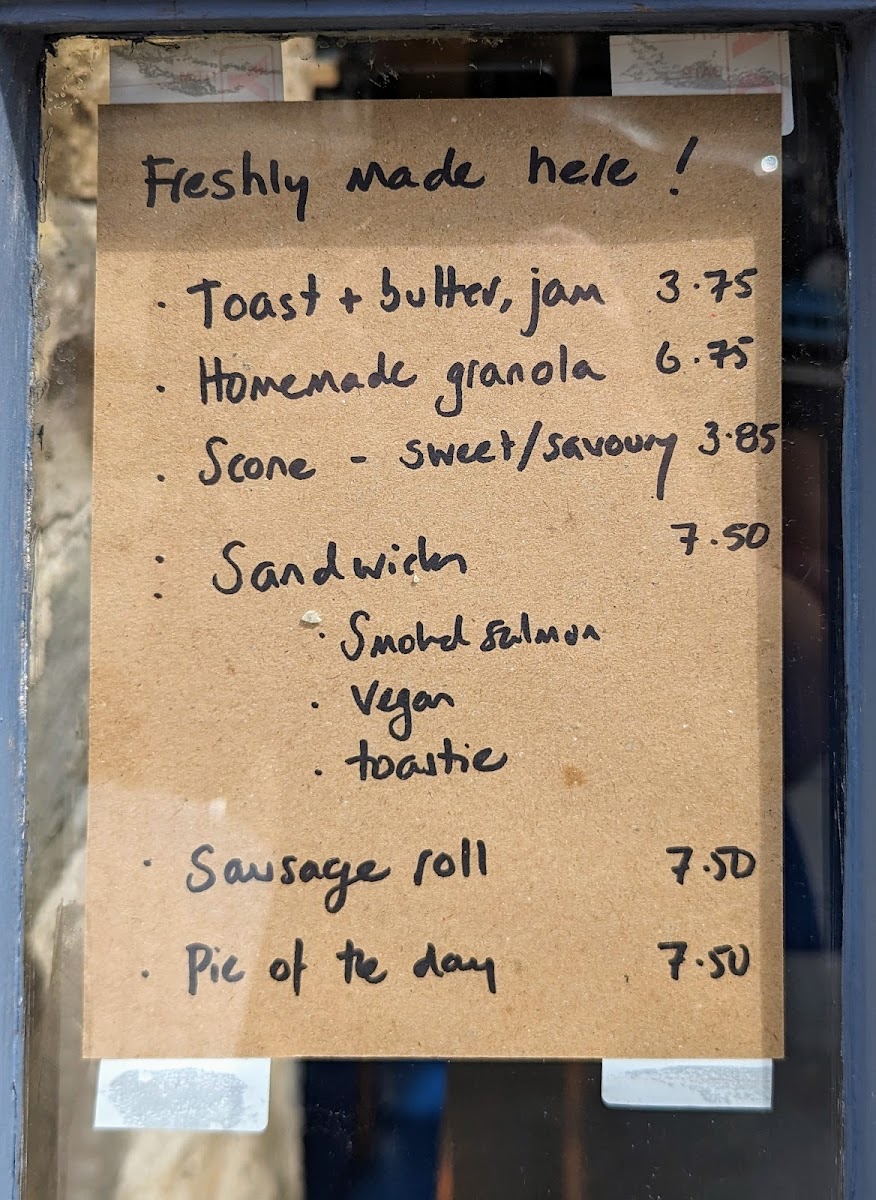 Freshly made here !
· Toast + butter, jam 3.75
· Homemade granola 6.75
· Scone - sweet/savoury 3.85
: Sandwiches 7.50
· Smoked salmon
· Vegan
· toastie
· Sausage roll 7.50
· Pie of the day 7.50